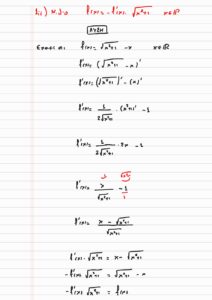 Δii) Ν.δ.ο f(x) = -f'(x) · √(x²+1) x∈ℝ
ΛΥΣΗ
Έχουμε ότι f(x) = √(x²+1) - x x∈ℝ
f'(x) = (√(x²+1) - x)'
f'(x) = (√(x²+1))' - (x)'
f'(x) = 1/(2√(x²+1)) · (x²+1)' - 1
f'(x) = 1/(2√(x²+1)) · 2x - 1
f'(x) = x/√(x²+1) - 1/1
f'(x) = (x - √(x²+1))/√(x²+1)
f'(x) · √(x²+1) = x - √(x²+1)
-f'(x) √(x²+1) = √(x²+1) - x
-f'(x) √(x²+1) = f(x)